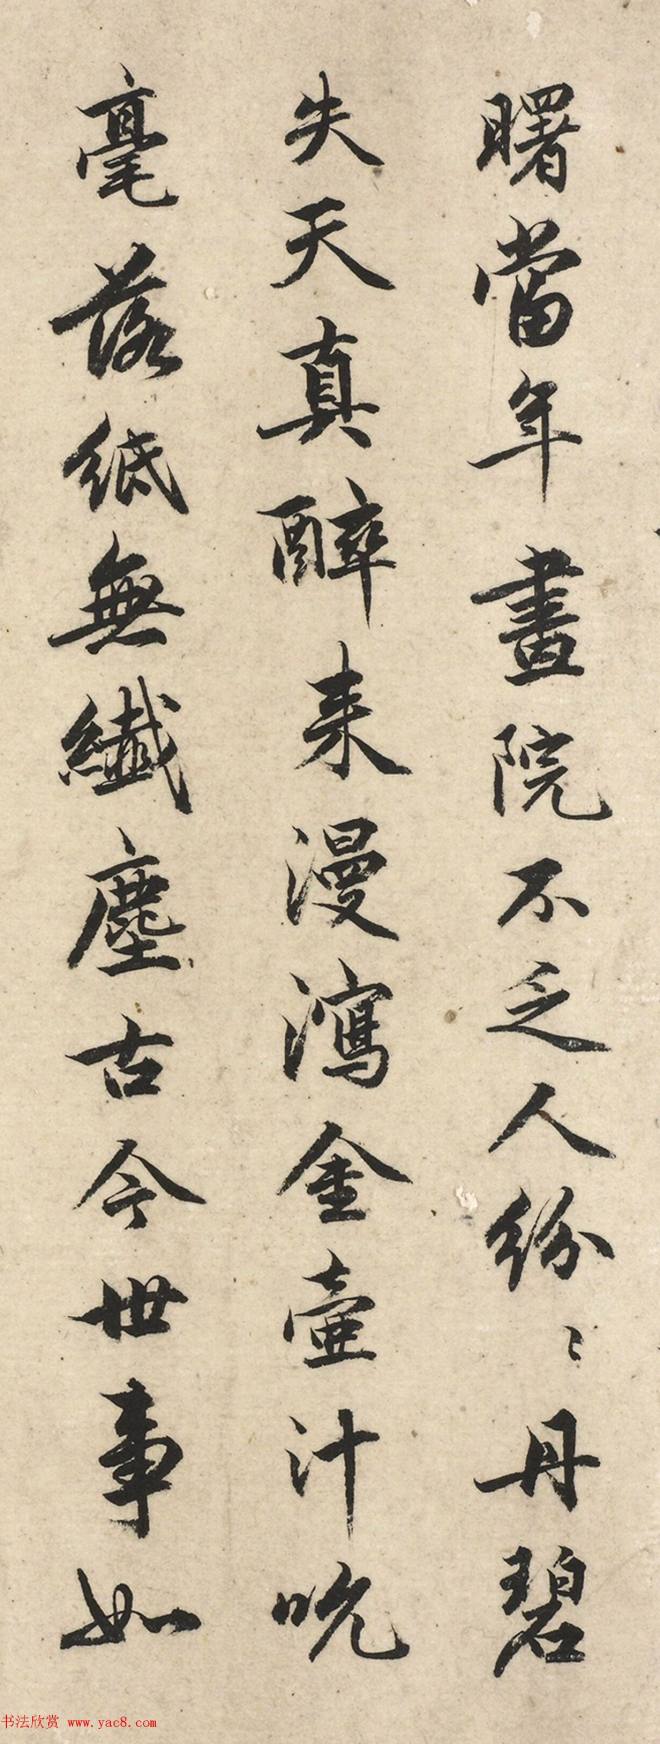 曙當年畫院不乏人紛〻丹碧
失天真醉来漫瀉金壺汁吮
毫落紙無纖塵古今世事如
书法欣赏 www.yac8.com